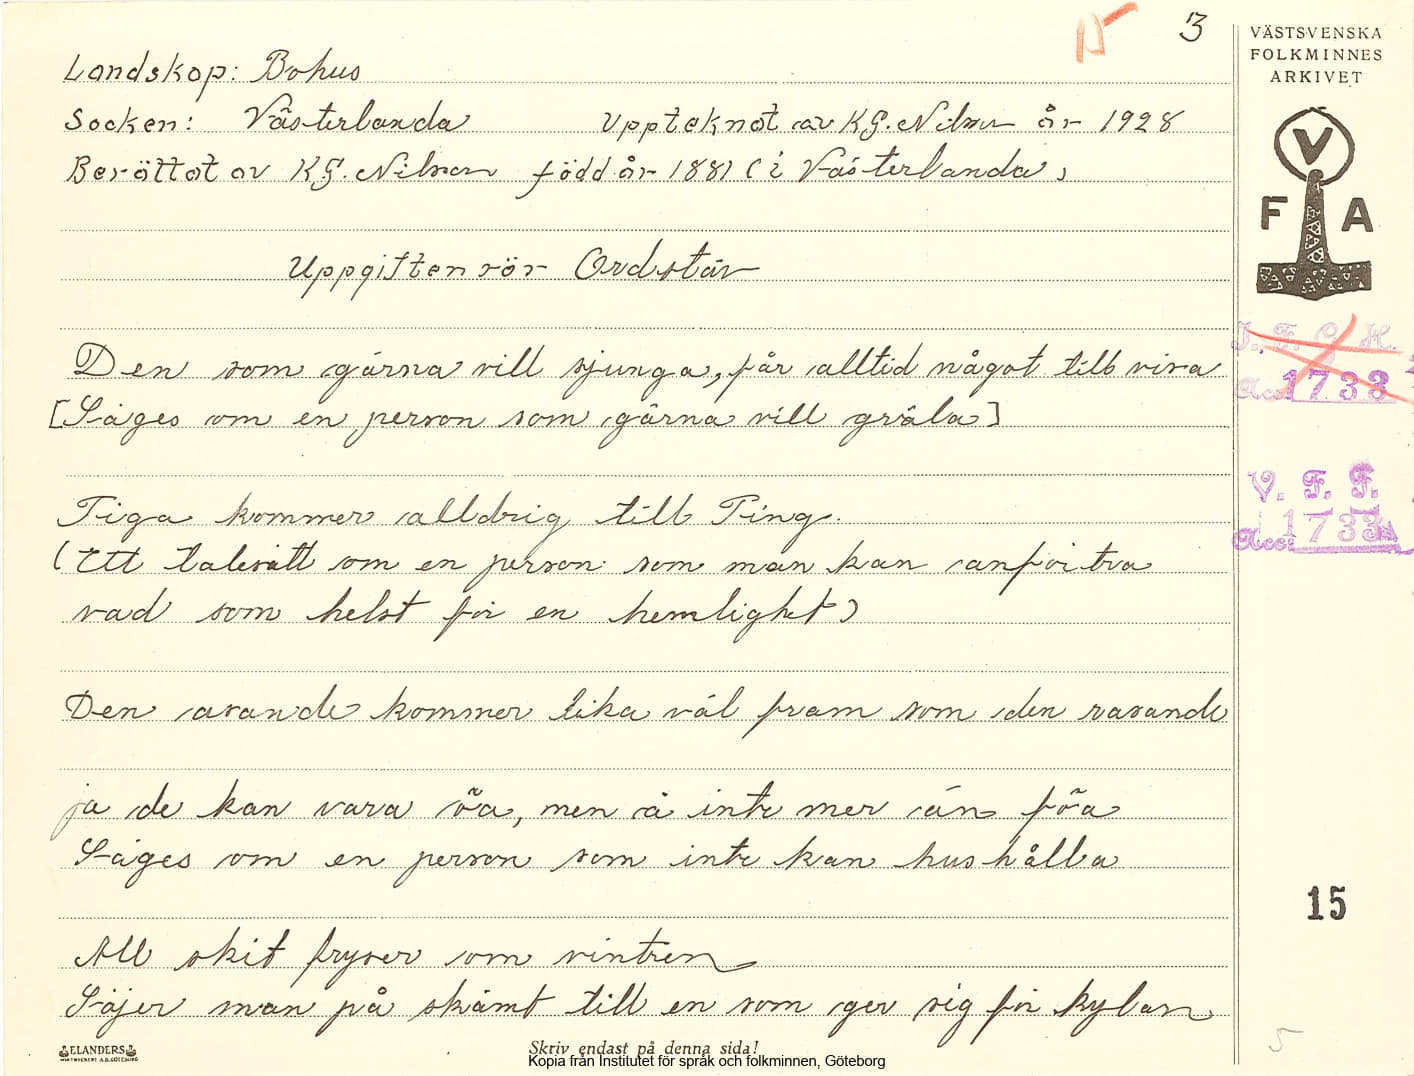 3
VÄSTSVENSKA
FOLKMINNES
ARKIVET
Landskap: Bohus
Socken: Västerlanda Upptecknat av KG. Nilson år 1928
Berättat av KG. Nilson född år 1881 (i Västerlanda)
V
F A
Uppgiften rör Ordstäv
I. F. G. H.
Acc. 1733
Den som gärna vill sjunga, får alltid något till visa
[Säges om en person som gärna vill gräla]
V. F. F.
Acc: 1733
Tiga kommer alldrig till Ting.
(Ett talesätt om en person som man kan anförtra
vad som helst för en hemlighet)
Den asande kommer lika väl fram som den rasande
ja de kan vara öa, men å inte mer än föa
Säges om en person som inte kan hushålla
15
All skit fryser om vintren
Säjer man på skämt till en som ger sig för kylan
5
ELANDERS
Skriv endast på denna sida!
Kopia från Institutet för språk och folkminnen, Göteborg